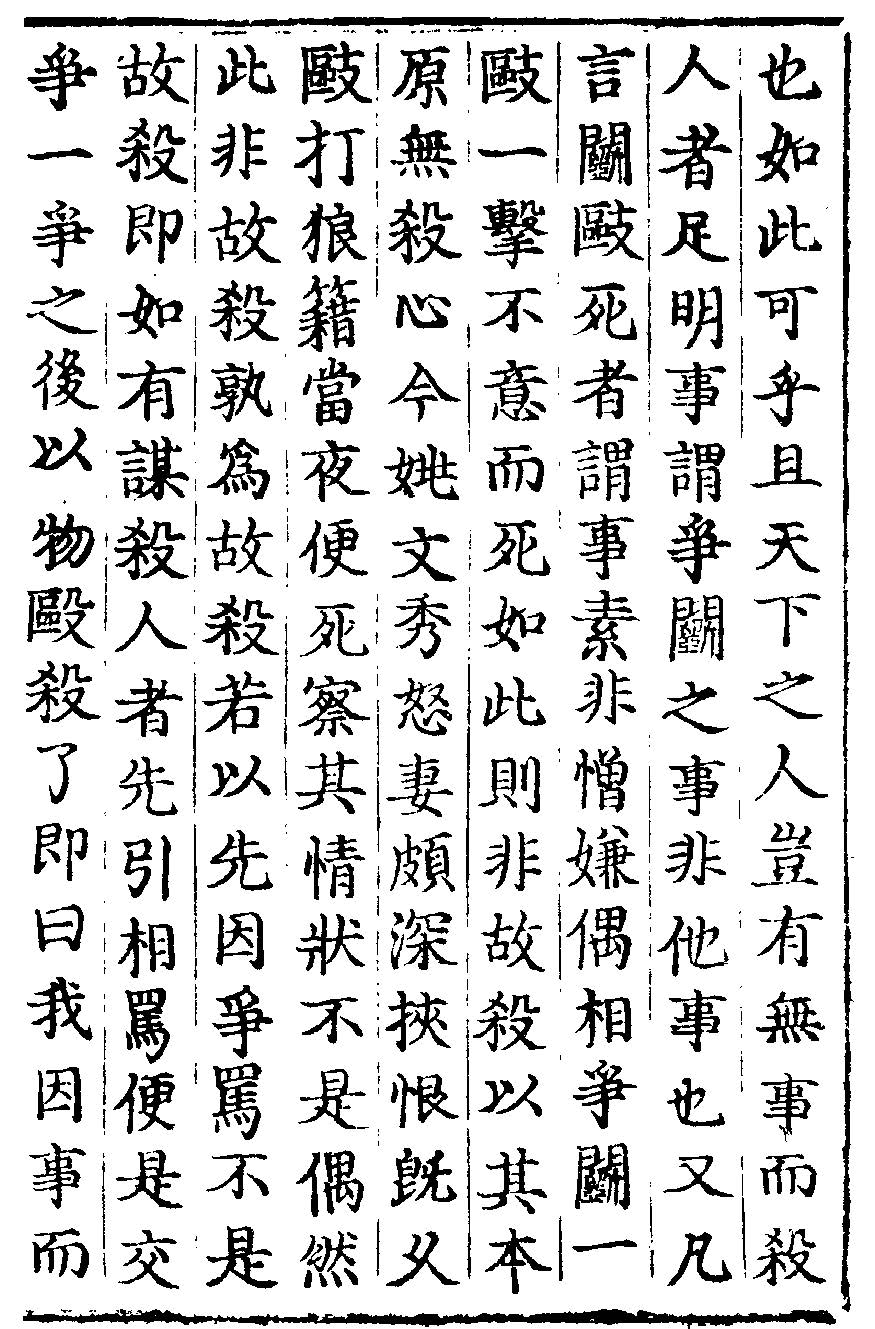 也如此可乎且天下之人豈有無事而殺
人者足明事謂爭鬭之事非他事也又凡
言鬭毆死者謂事素非憎嫌偶相爭鬭一
毆一擊不意而死如此則非故殺以其本
原無殺心今姚文秀怒妻頗深挾恨既久
毆打狼籍當夜便死察其情狀不是偶然
此非故殺孰為故殺若以先因爭罵不是
故殺即如有謀殺人者先引相罵便是交
爭一爭之後以物毆殺了即曰我因事而